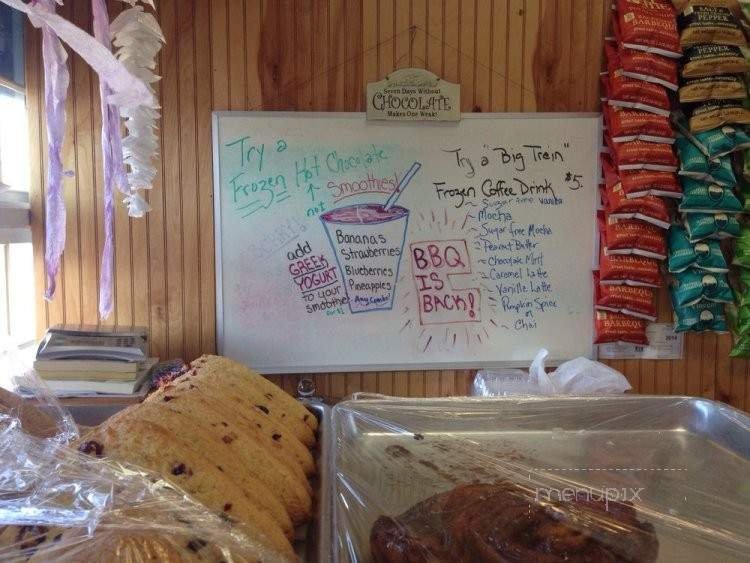 Seven Days Without
CHOCOLATE
Makes One Weak!
Try a
Frozen Hot Chocolate
not
Smoothies!
Bananas
Strawberries
Blueberries
Pineapples
Any Combo!
add
GREEK
YOGURT
to your
smoothie
BBQ
IS
BACK!
Try a "Big Train"
Frozen Coffee Drink $5.
Sugar free vanilla
Mocha
Sugar free Mocha
Peanut Butter
Chocolate Mint
Caramel Latte
Vanilla Latte
Pumpkin Spice
or
Chai
BARBEQUE
BARBEQUE
BARBEQUE
BARBEQUE
BARBEQUE
BARBEQUE
BARBEQUE
PEPPER
PEPPER
PEPPER
menupix